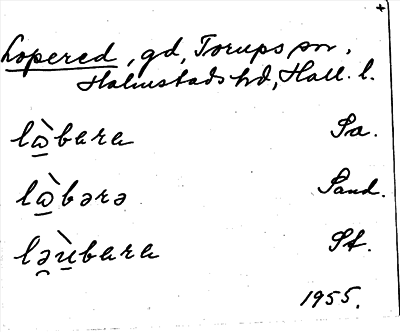 Lopered, gd, Torups sn.
Halmstads hd, Hall. l.
lò̱bara Sa.
lò̱bərə Sand.
lə̯ù̱bara St.
1955.